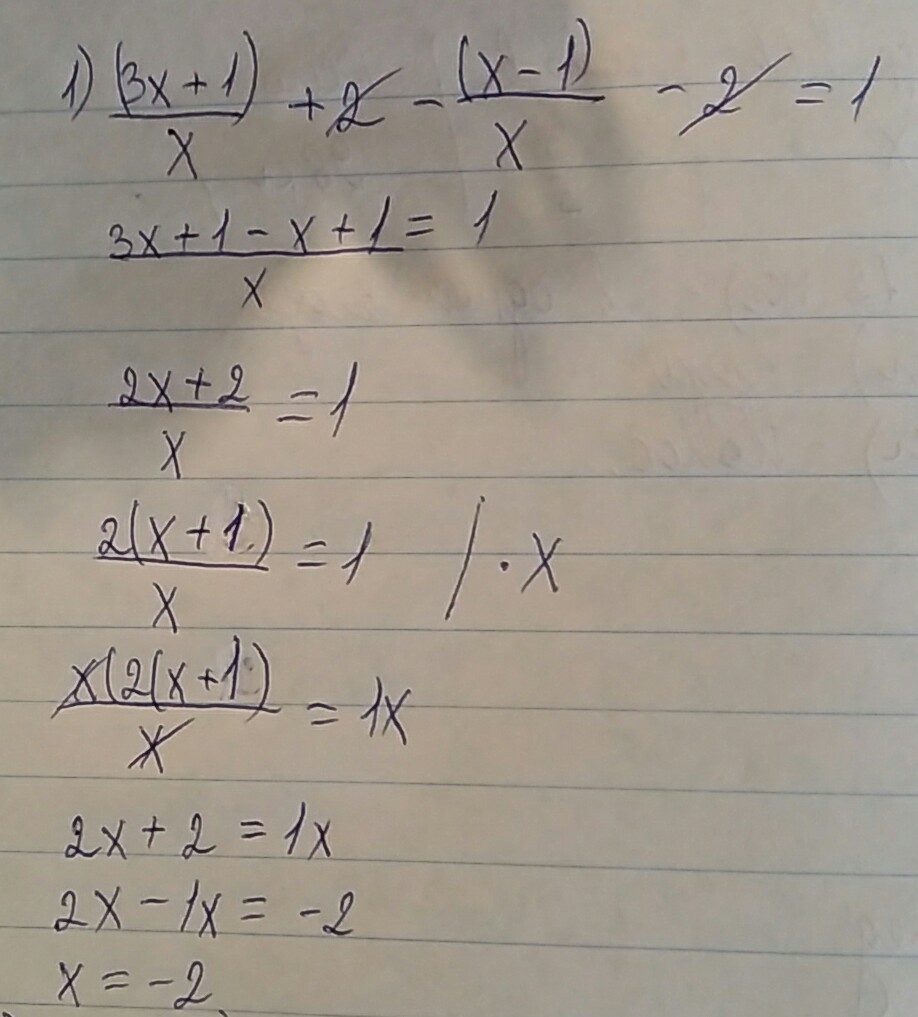 1) (3x+1)/x + 2 - (x-1)/x - 2 = 1
(3x+1-x+1)/x = 1
(2x+2)/x = 1
2(x+1)/x = 1 / · x
x(2(x+1)/x = 1x
2x+2 = 1x
2x-1x = -2
x = -2